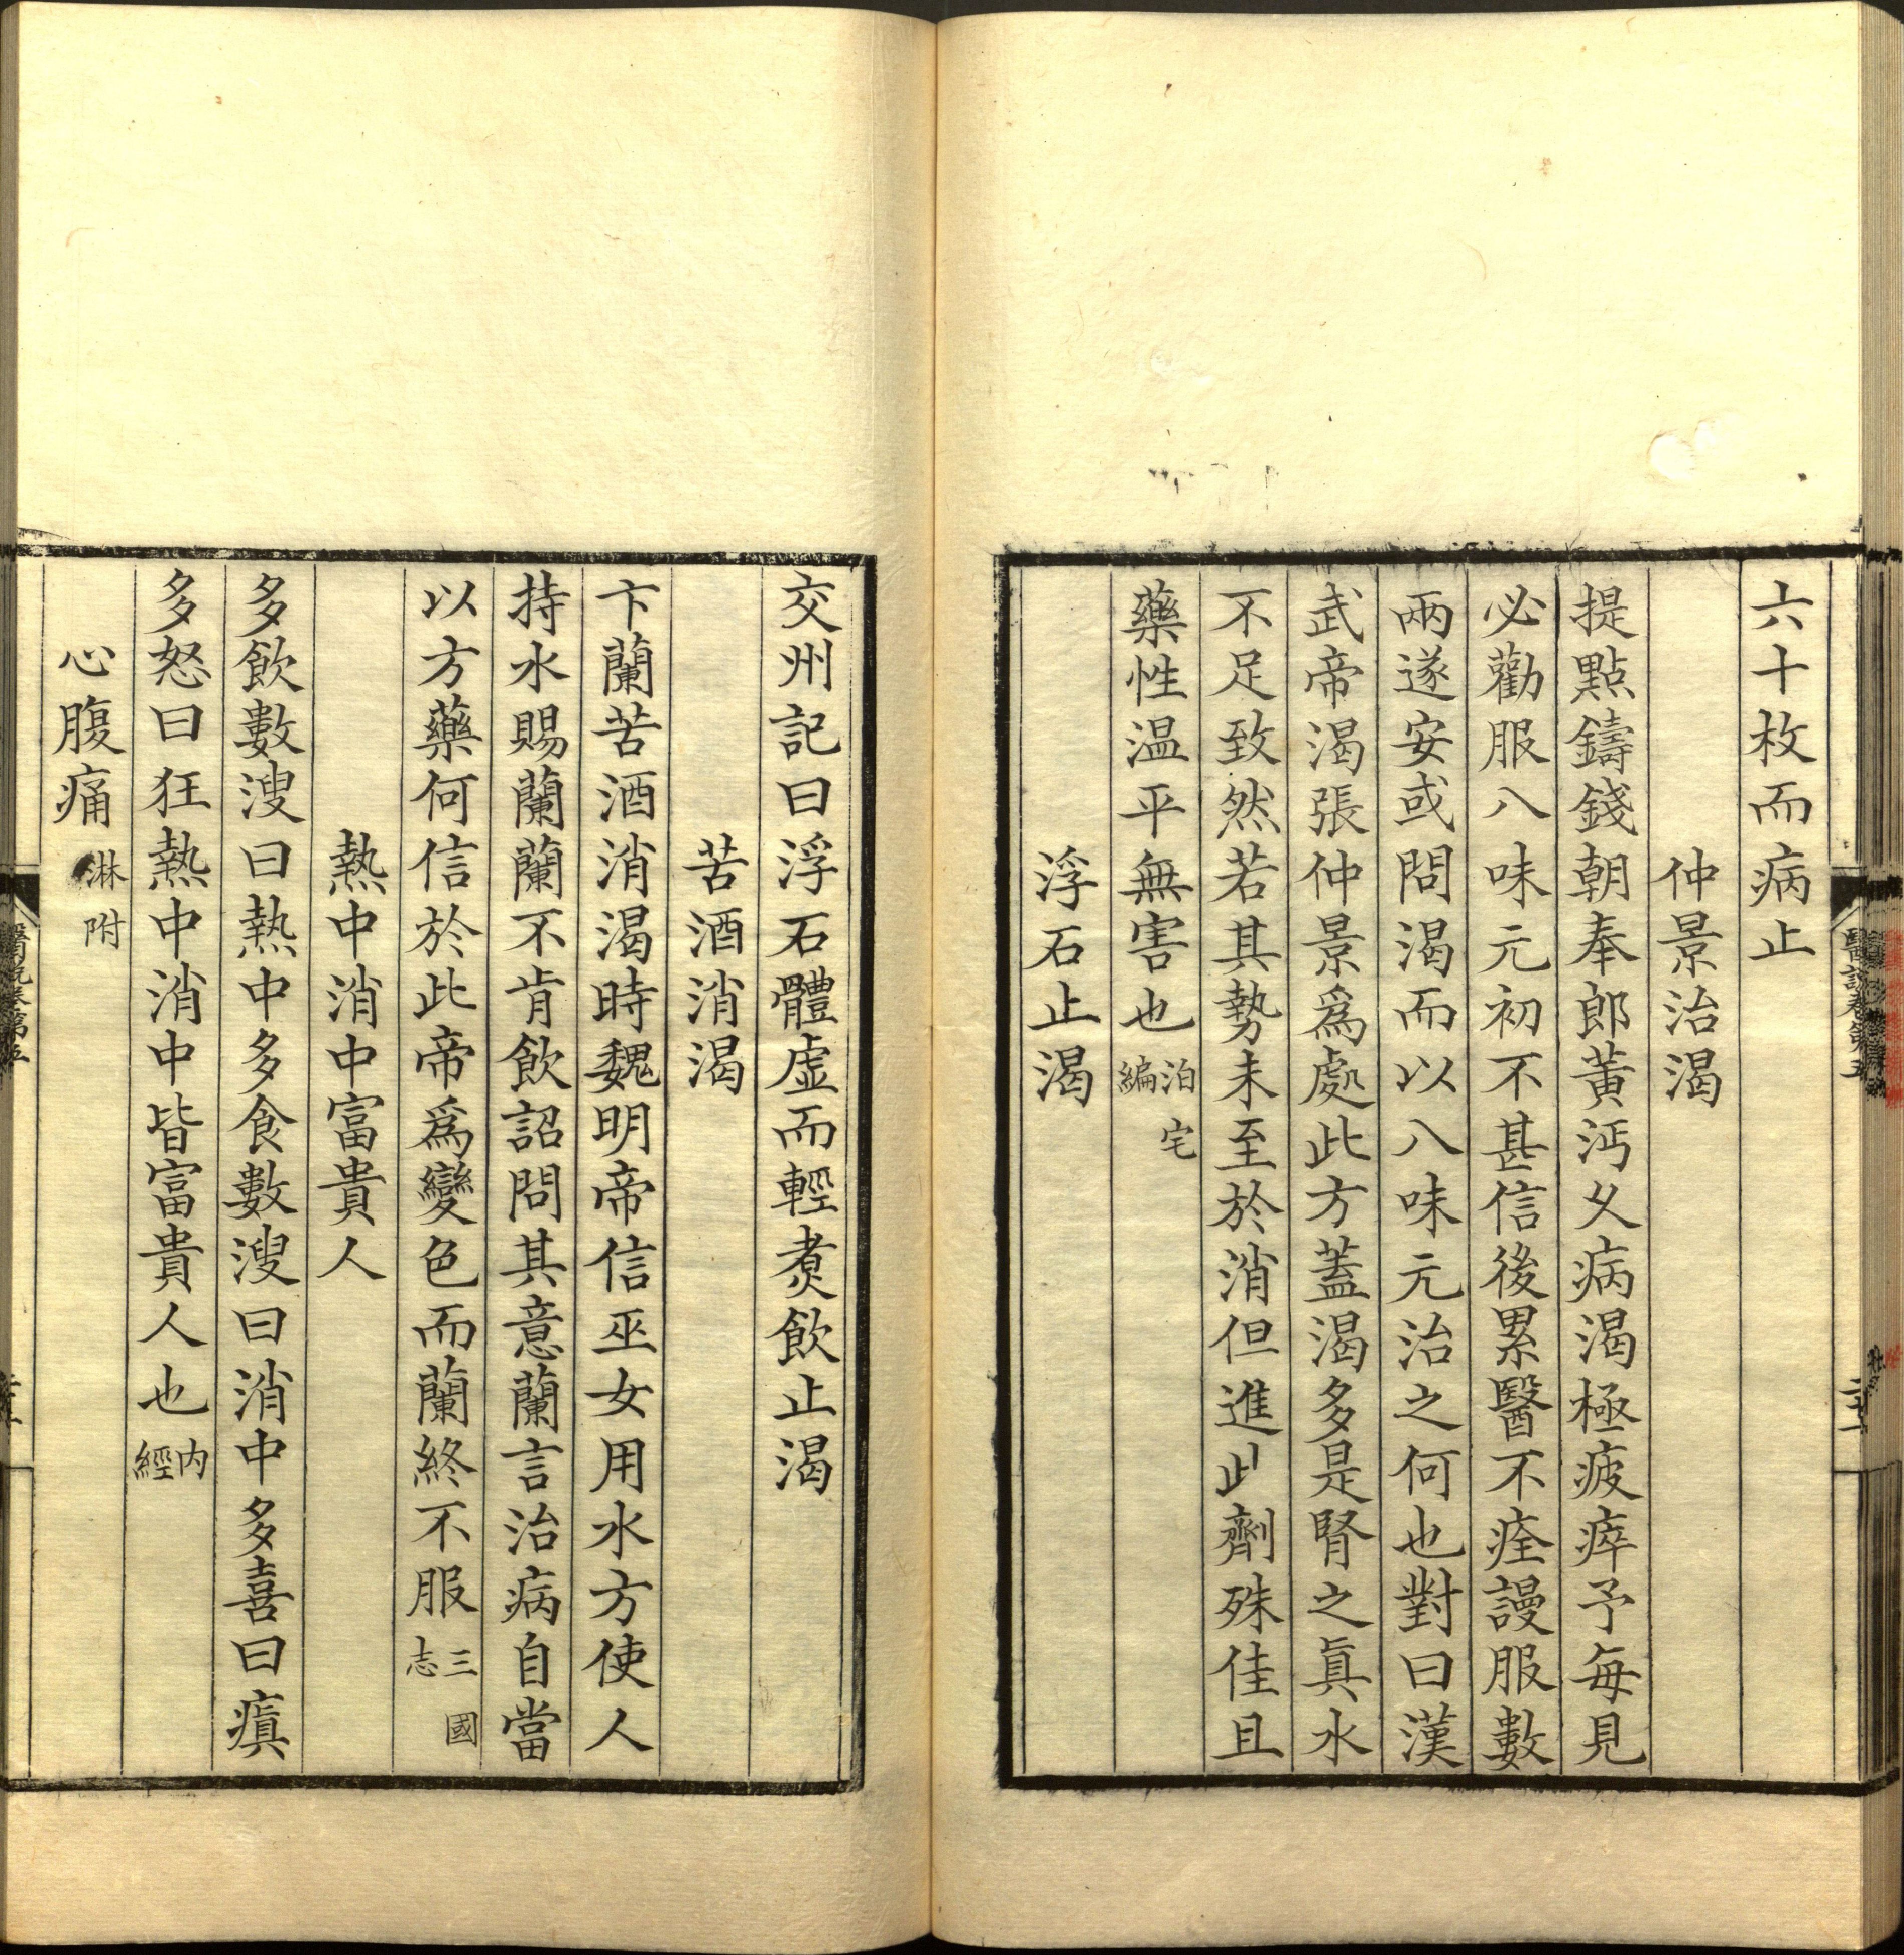 六十枚而病止
仲景治渴
提點鑄錢朝奉郎黃沔乆病渴極疲瘁予每見
必勸服八味元初不甚信後累醫不痊謾服數
兩遂安或問渴而以八味元治之何也對曰漢
武帝渴張仲景爲處此方蓋渴多是腎之眞水
不足致然若其勢未至於消但進此劑殊佳且
藥性温平無害也泊宅編
浮石止渴
交州記曰浮石體虛而輕煑飲止渴
苦酒消渴
卞蘭苦酒消渴時魏明帝信巫女用水方使人
持水賜蘭蘭不肯飲詔問其意蘭言治病自當
以方藥何信於此帝爲變色而蘭終不服三國志
熱中消中富貴人
多飲數溲曰熱中多食數溲曰消中多喜曰瘨
多怒曰狂熱中消中皆富貴人也内經
心腹痛淋附
醫說卷第五